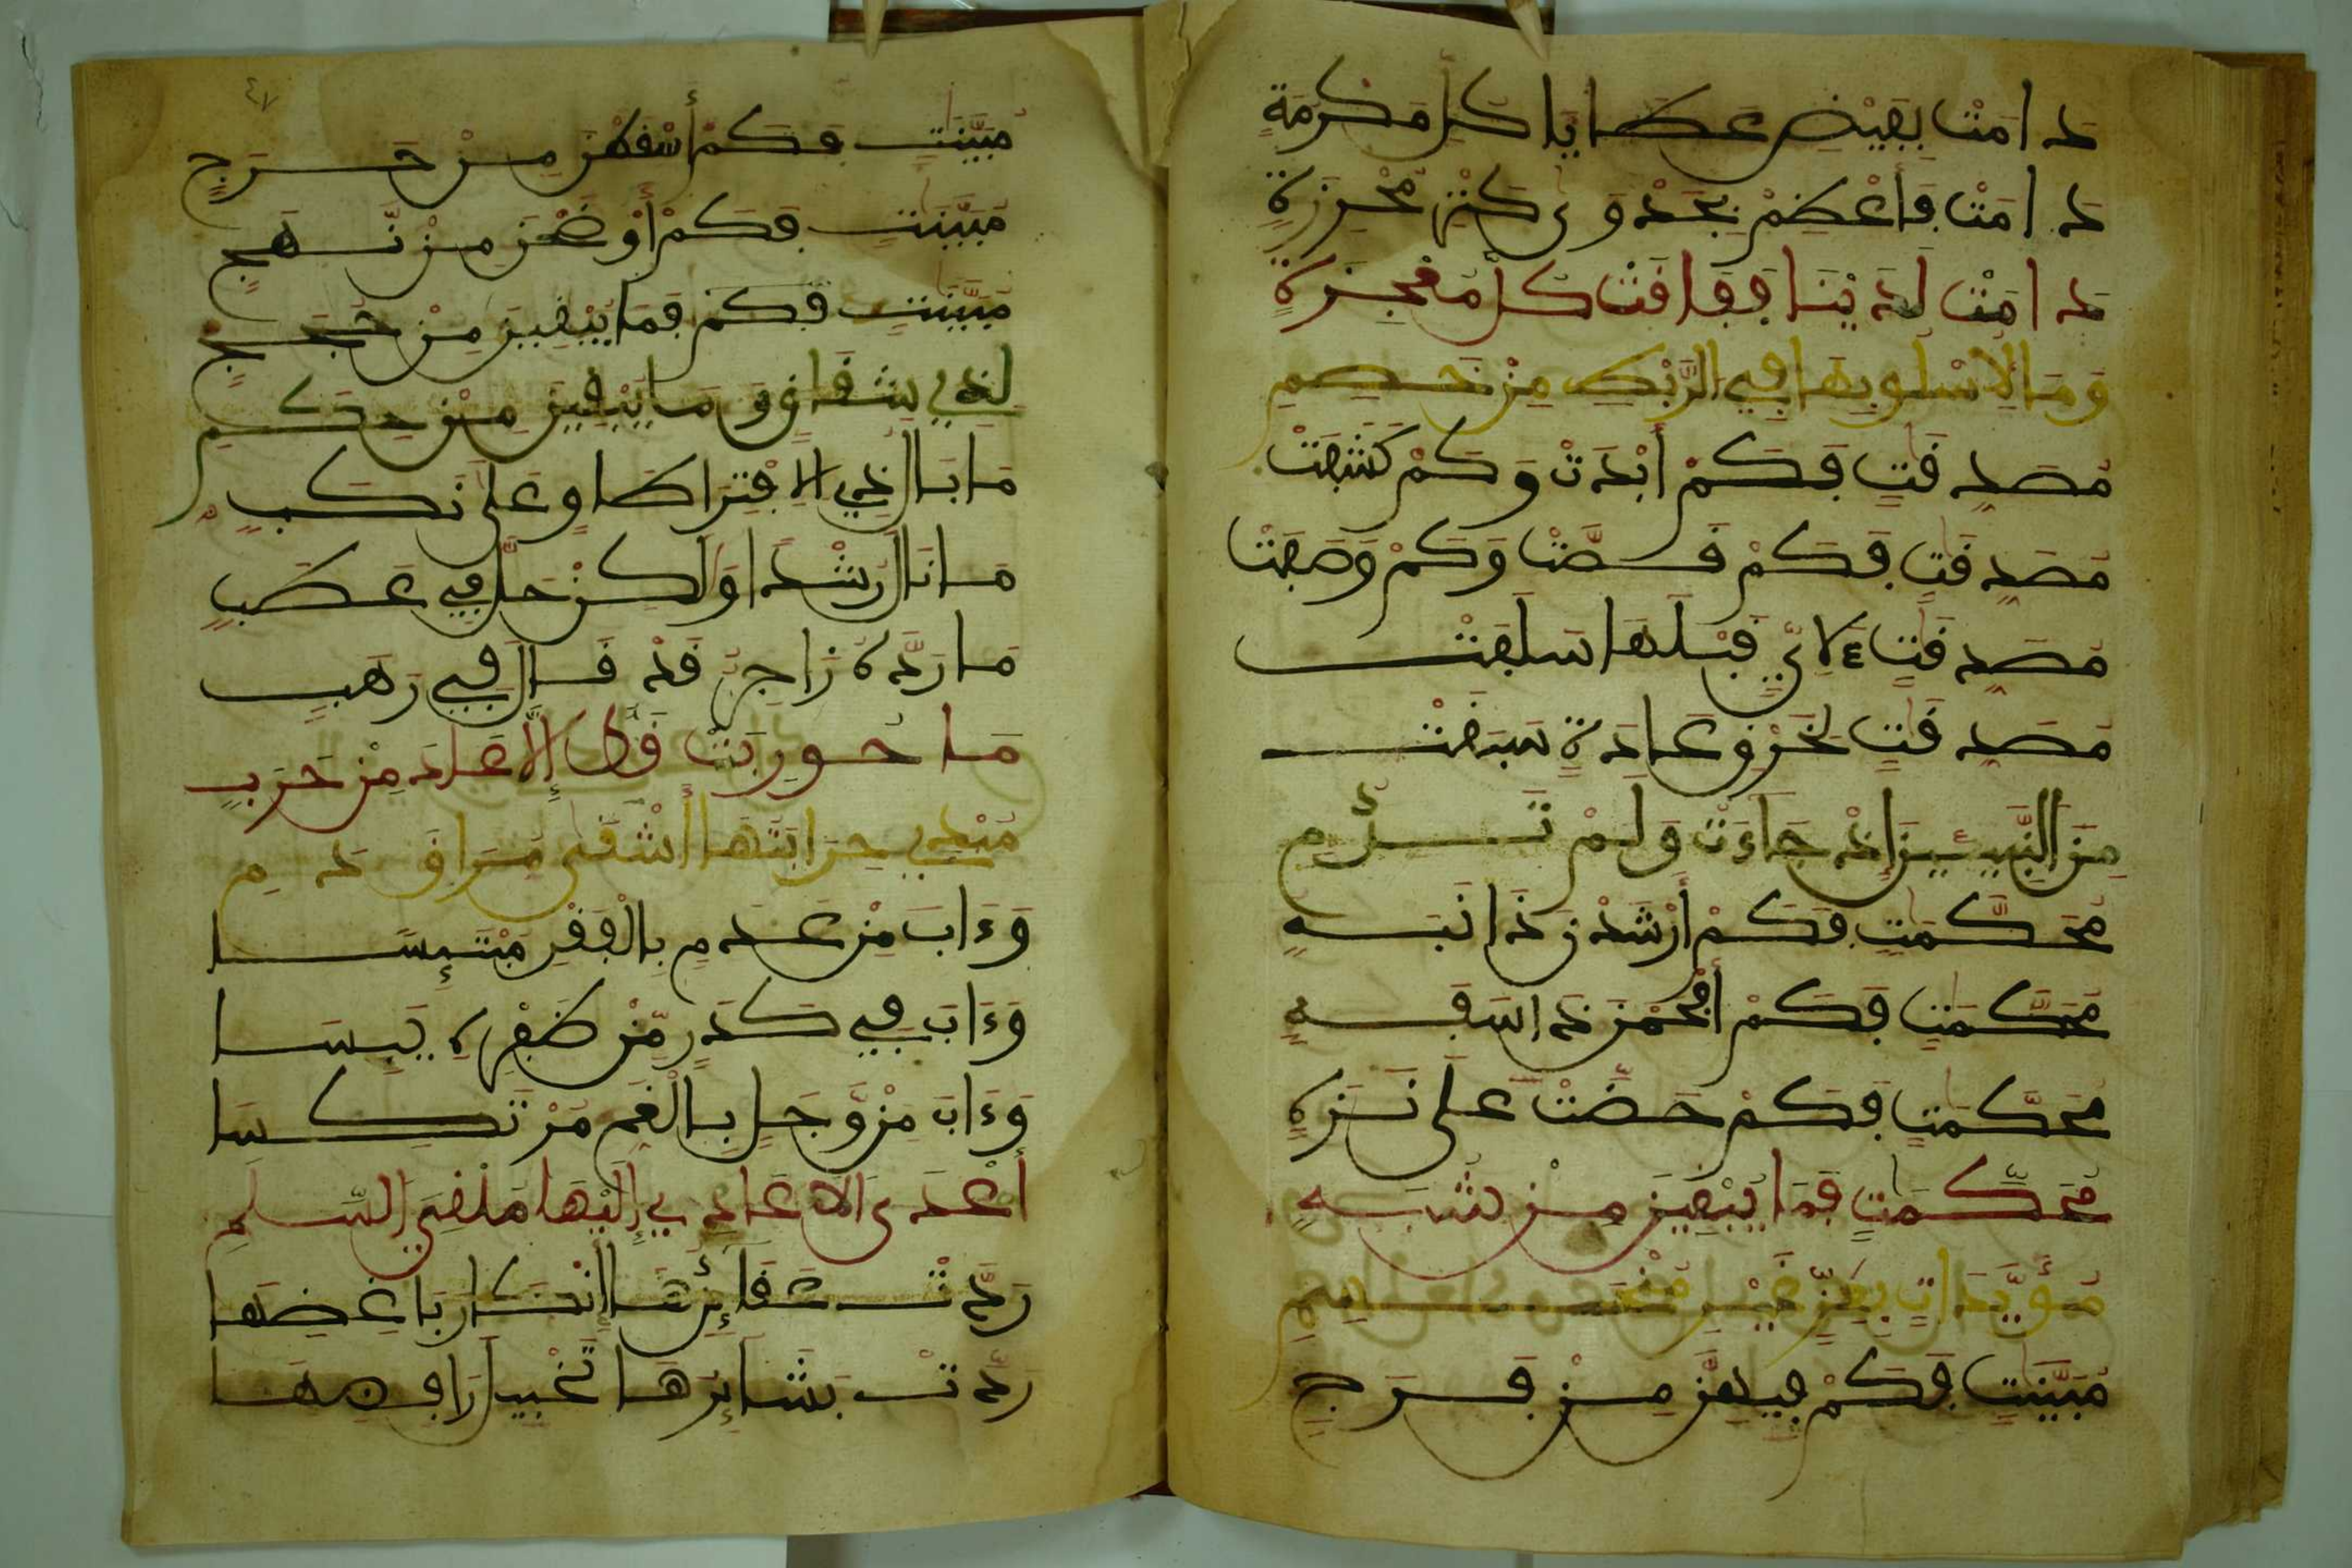 دَامَتْ بِفَيْضِ عَطَايَا كُلِّ مَكْرُمَةٍ
دَامَتْ فَأَعْظِمْ بِجَدْوَى كنه مُحْرِزَةٍ
دَامَتْ لَدَيْنَا فَفَاقَتْ كُلَّ مُعْجِزَةٍ
وَمَا لِأسْلُوبِهَا فِي من
مُصَدِّقَاتٍ فَكَمْ أَبْدَتْ وَكَمْ كَشَفَتْ
مُصَدِّقَاتٍ فَكَمْ قَصَّتْ وَكَمْ وَصَفَتْ
مُصَدِّقَاتٍ لِأيٍ قَبْلَهَا سَلَفَتْ
مُصَدِّقَاتٍ لِخَرْقِ عَادَةٍ سَبَقَتْ
مِنَ النَّبِيئِينَ إِذْ جَاءَتْ وَلَمْ تَرُمِ
مُحَكَّمَاتٍ فَكَمْ أَرْشَدْنَ ذَا نَبَهٍ
مُحَكَّمَاتٍ فَكَمْ أَفْحَمْنَ ذَا سَفَهٍ
مُحَكَّمَاتٍ فَكَمْ حَضَّتْ عَلَى نَزَهٍ
مُحَكَّمَاتٍ فَمَا يُبْقِينَ مِنْ شُبَهٍ
مُؤَيَّدَاتٍ بِعِزٍّ غَيْرِ
مُبَيِّنَاتٍ فَكَمْ فِيهِنَّ مِنْ فَرَجٍ
مُبَيِّنَاتٍ فَكَمْ أَسْقَطْنَ مِنْ حَرَجٍ
مُبَيِّنَاتٍ فَكَمْ أَوْضَحْنَ مِنْ نَهَجٍ
مُبَيِّنَاتٍ فَكَمْ فَمَا يُبْقِينَ مِنْ حُجَجٍ
لِذِي شِقَاقٍ وَمَا يَبْغِينَ مِنْ حِكَمِ
مَا بَالُ ذِي الِافْتِرَا طَاوٍ عَلَى نَكَبٍ
مَا نَالَ رُشْدًا وَلَكِنْ حَلَّ فِي عَطَبٍ
مَا رَدَّهُ زَاجِرٌ قَدْ قَالَ فِي رَهَبٍ
مَا حُورِبَتْ قَطُّ إِلَّا عَادَ مِنْ حَرَبٍ
مُبْدِي حِرَابَتِهَا أَشْقَى مُرَاقِ دَمِ
وَءَابَ مِنْ عَدَمٍ بِالْفَقْرِ مُبْتَئِسَا
وَءَابَ فِي كَدَرٍ مِنْ ظَفْرِهِ يَئِسَا
وَءَابَ مِنْ وَجَلٍ بِالْغَمِّ مُرْتَكِسَا
أَعْدَى الْأَعَادِي إِلَيْهَا مُلْقِيَ السَّلَمِ
رَدَّتْ إِنْكَارَ بَاغِضِهَا
رَدَّتْ بَشَائِرُهَا تَخْيِيلَ رَافِضِهَا